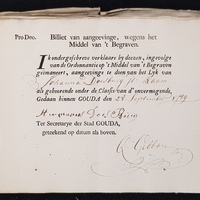 Pro Deo. Billiet van aangeevinge, wegens het
Middel van 't Begraven.
Ik ondergeschreve verklaare by deezen, ingevolge
van de Ordonnantie op 't Middel van 't Begraven
geëmaneert, aangeevinge te doen van het Lyk van
Johanna
als gehoorende onder de Classis van d' onvermogende,
Gedaan binnen GOUDA den 28 September 1799
Hermanus
Ter Secretarye der Stad GOUDA,
geteekend op datum als boven.